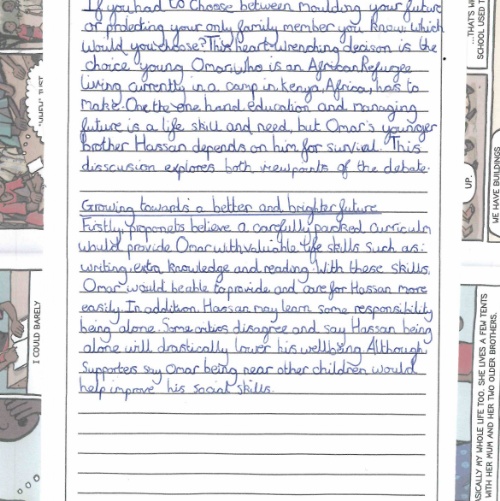 If you had to choose between moulding your future
or protecting your only family member you know which
would you choose? This heart-wrenching decison is the
choice young Omar, who is an African Refugee
living currently in a camp in Kenya, Africa, has to
make. One the one hand, education and managing
future is a life skill and need, but Omar's younger
brother Hassan depends on him for survival. This
disscusion explores both viewpoints of the debate.
Growing towards a better and brighter future
Firstly, proponets believe a carefully packed curriculm
would provide Omar with valuable life skills such as:
writing, extra knowledge and reading. With these skills,
Omar would be able to provide and care for Hassan more
easily. In addition, Hassan may learn some responsibility
being alone. Some critics disagree and say Hassan being
alone will drastically lower his wellbeing. Although
supporters say Omar being near other children would
help improve his social skills.
I COULD BARELY
...THAT'S
SCHOOL USED T
UP.
WE HAVE BUILDINGS
SICALLY MY WHOLE LIFE TOO. SHE LIVES A FEW TENTS
WITH HER MUM AND HER TWO OLDER BROTHERS.